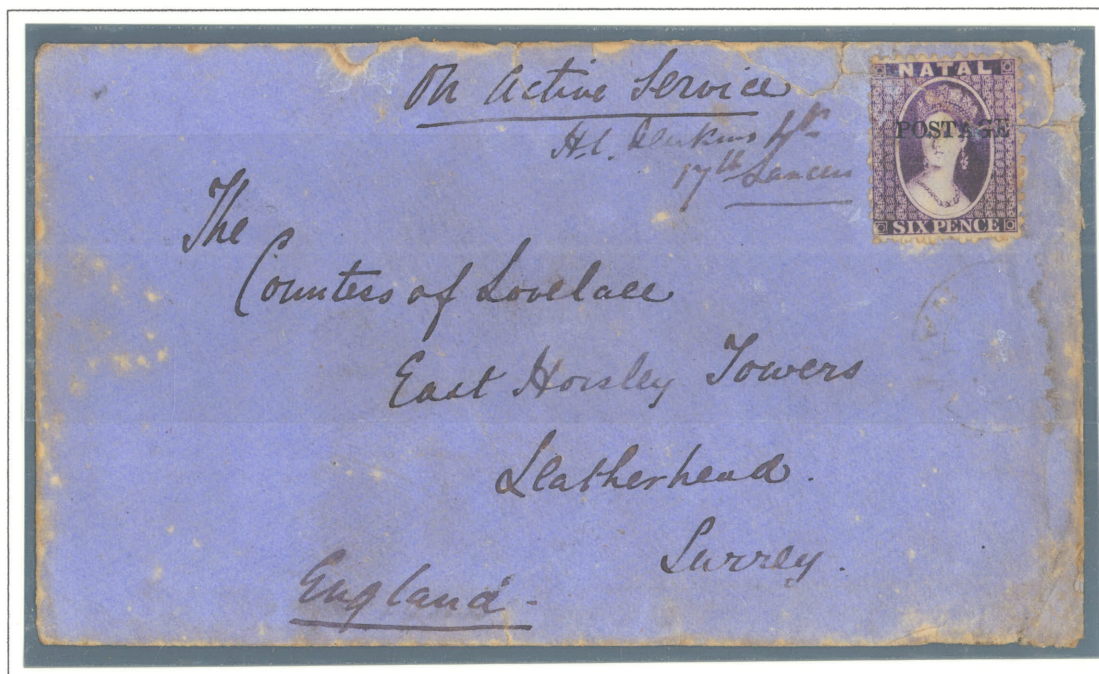 On Active Service
H.C. Jenkins
17th Lancers
NATAL
POSTAGE
SIX PENCE
The
Countess of Lovelace
East Horsley Towers
Leatherhead.
Surrey.
England -